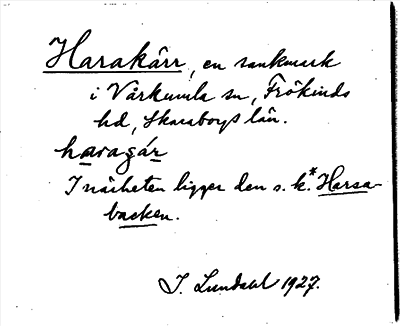 Harakärr, en sankmark
i Vårkumla sn, Frökinds
hd, Skaraborgs län.
haragár
I närheten ligger den s. k.* Harsa-
backen.
I. Lundahl 1927.